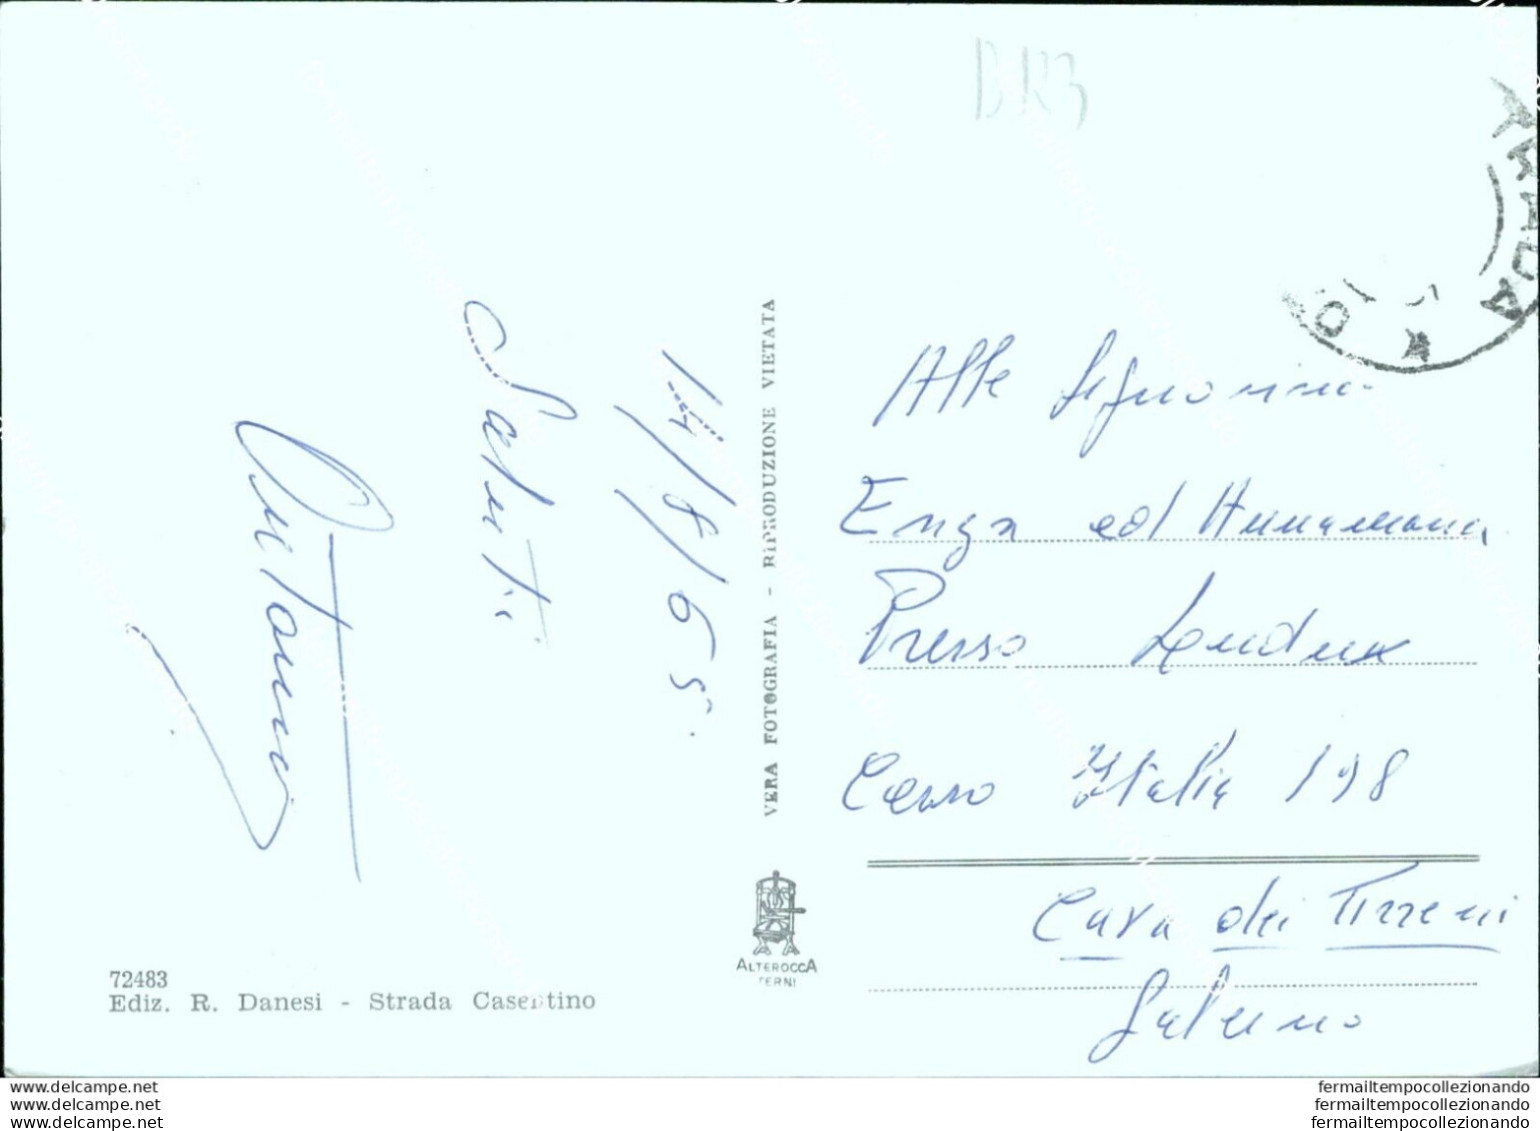 BR3
STRADA
14/8/65.
Saluti
VERA FOTOGRAFIA - RIPRODUZIONE VIETATA
Alle Signorine
Enza ed Annamaria
Presso
Corso Italia 198
Cava dei Tirreni
Salerno
ALTEROCCA
TERNI
72483
Ediz. R. Danesi - Strada Casentino
www.delcampe.net
www.delcampe.net
www.delcampe.net
fermailtempocollezionando
fermailtempocollezionando
fermailtempocollezionando